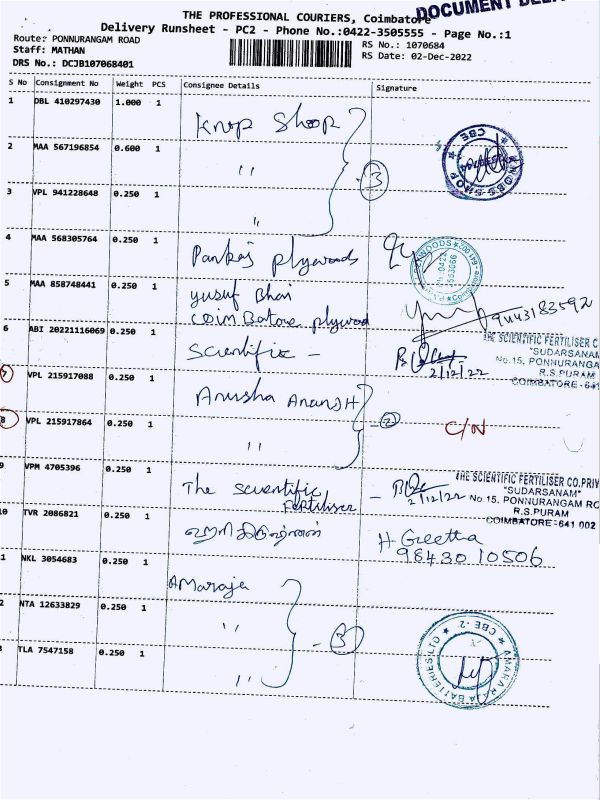 DOCUMENT
THE PROFESSIONAL COURIERS, Coimbatore
Delivery Runsheet - PC2 - Phone No.:0422-3505555 - Page No.:1
Route: PONNURANGAM ROAD
Staff: MATHAN
DRS No.: DCJB107068401
RS No.: 1070684
RS Date: 02-Dec-2022
S No Consignment No Weight PCS Consignee Details Signature
1 DBL 410297430 1.000 1 Knop Shop
2 MAA 567196854 0.600 1 ''
3
3 VPL 941228648 0.250 1 ''
4 MAA 568305764 0.250 1 Pankaj plywoods
5 MAA 858748441 0.250 1 yusuf Bhai
Coim Batore plywood
9443183592
6 ABI 20221116069 0.250 1 Scientific -
2/12/22
THE SCIENTIFIC FERTILISER C
"SUDARSANAM
No.15, PONNURANGA
R.S.PURAM
COIMBATORE - 641
VPL 215917088 0.250 1 Anusha Anand H
8 VPL 215917864 0.250 1 ''
2
C/N
9 VPM 4705396 0.250 1 The scientific
Fertiliser
2/12/22
THE SCIENTIFIC FERTILISER CO.PRIV
"SUDARSANAM"
No.15, PONNURANGAM RO
R.S.PURAM
COIMBATORE - 641 002
10 TVR 2086821 0.250 1 ஹரிகிருஷ்ணன்
H Geetha
98430 10506
1 NKL 3054683 0.250 1 AMaraja
2 NTA 12633829 0.250 1 ''
3
TLA 7547158 0.250 1 ''
AMARARAJA BATTERIES LTD ★ CBE-2. ★